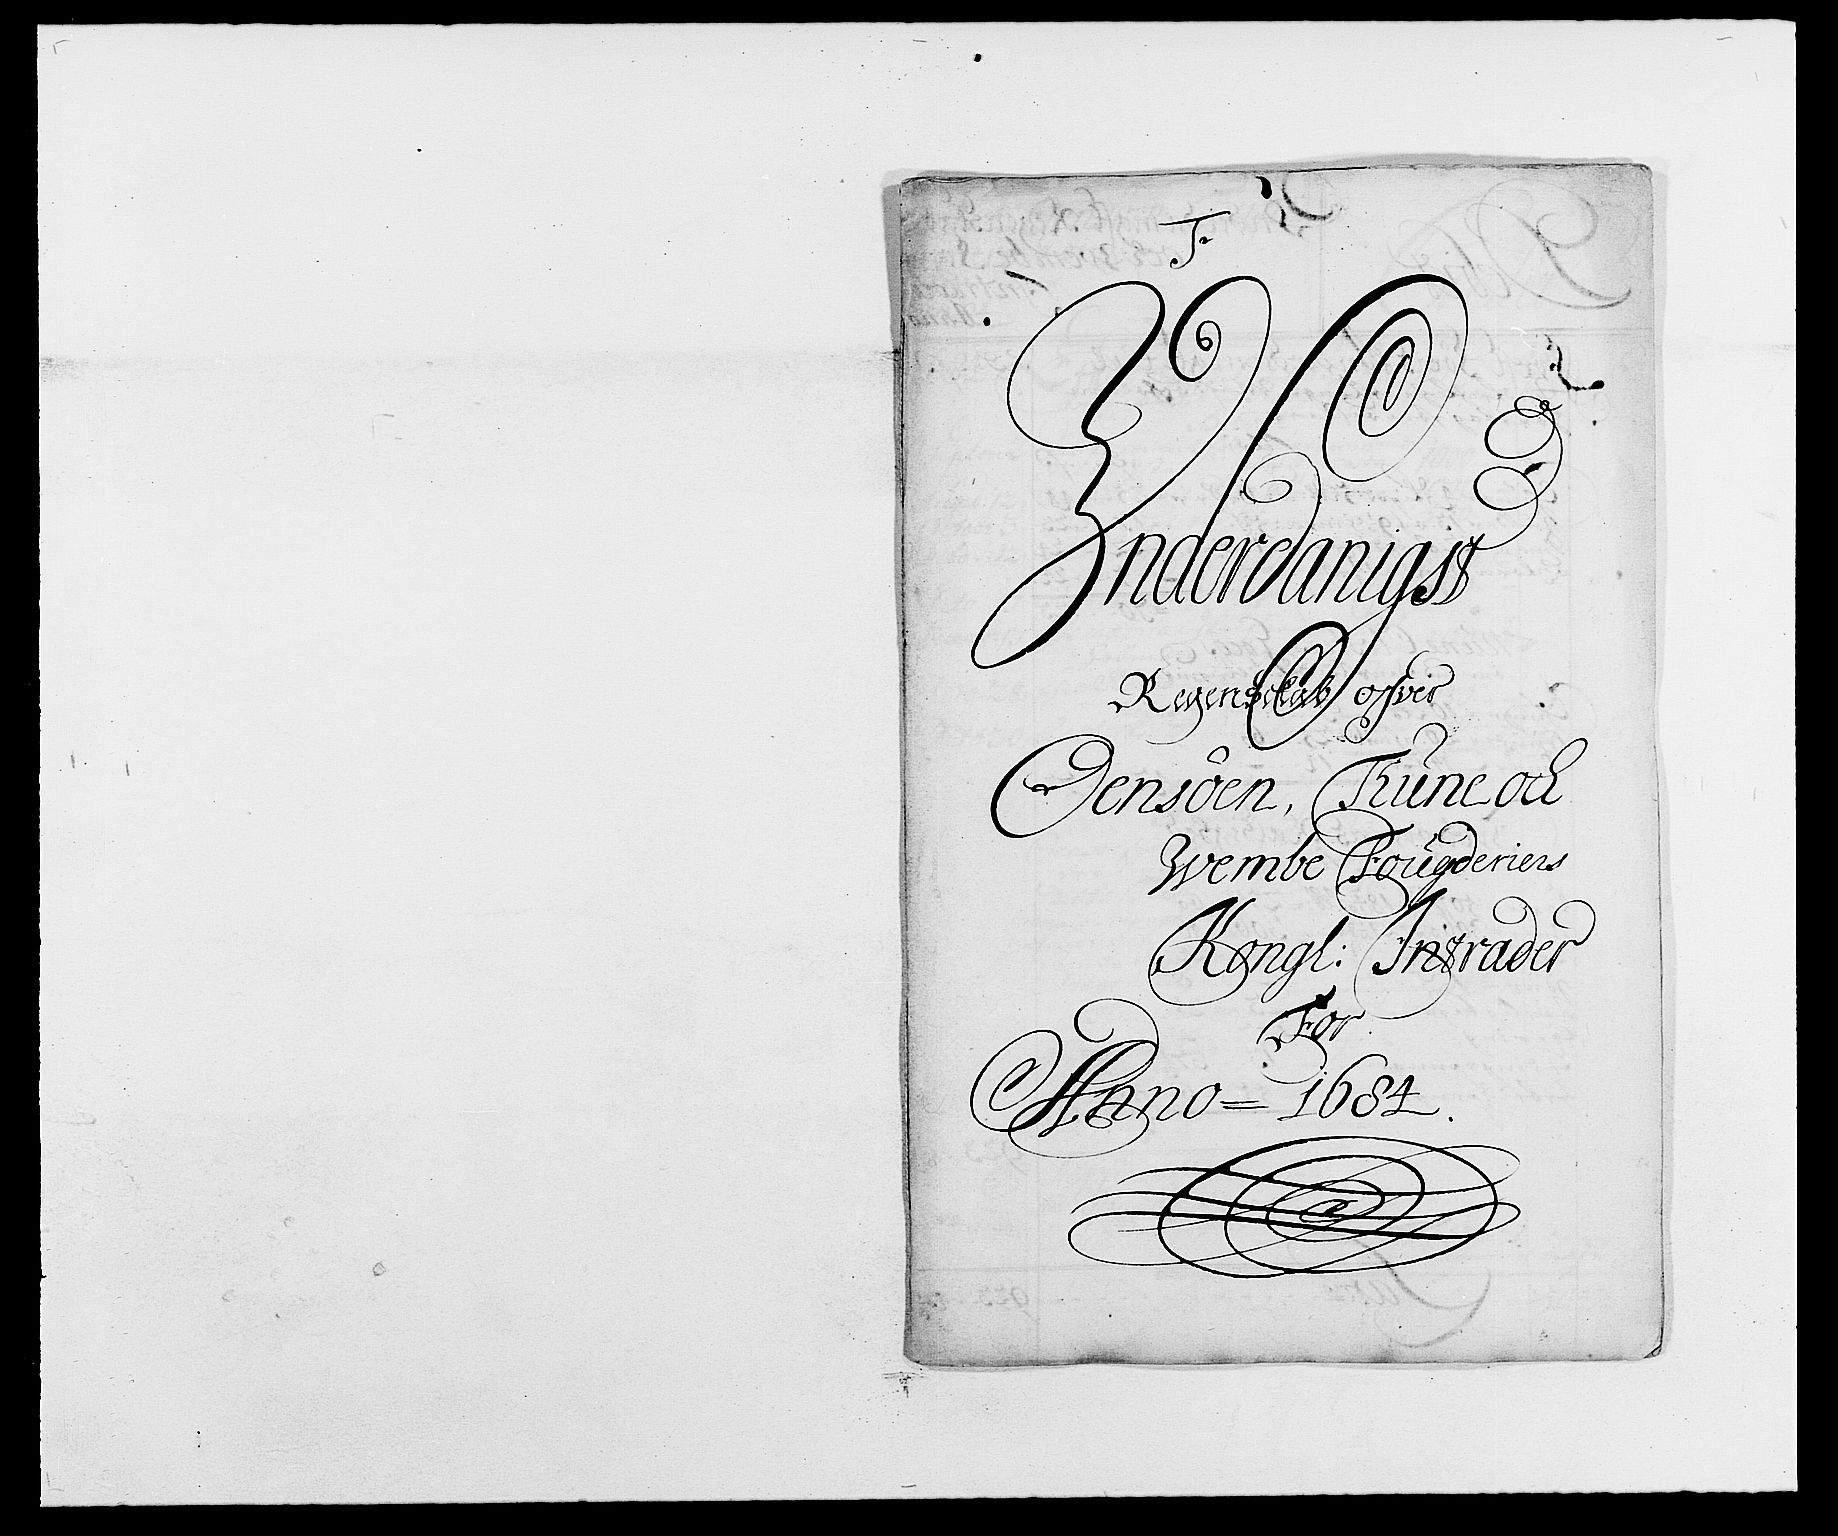 Underdanigst
Regenschab offver
Oensöen, Tune och
Wembe Fougderiers
Kongl: Intrader
For
Anno = 1684.